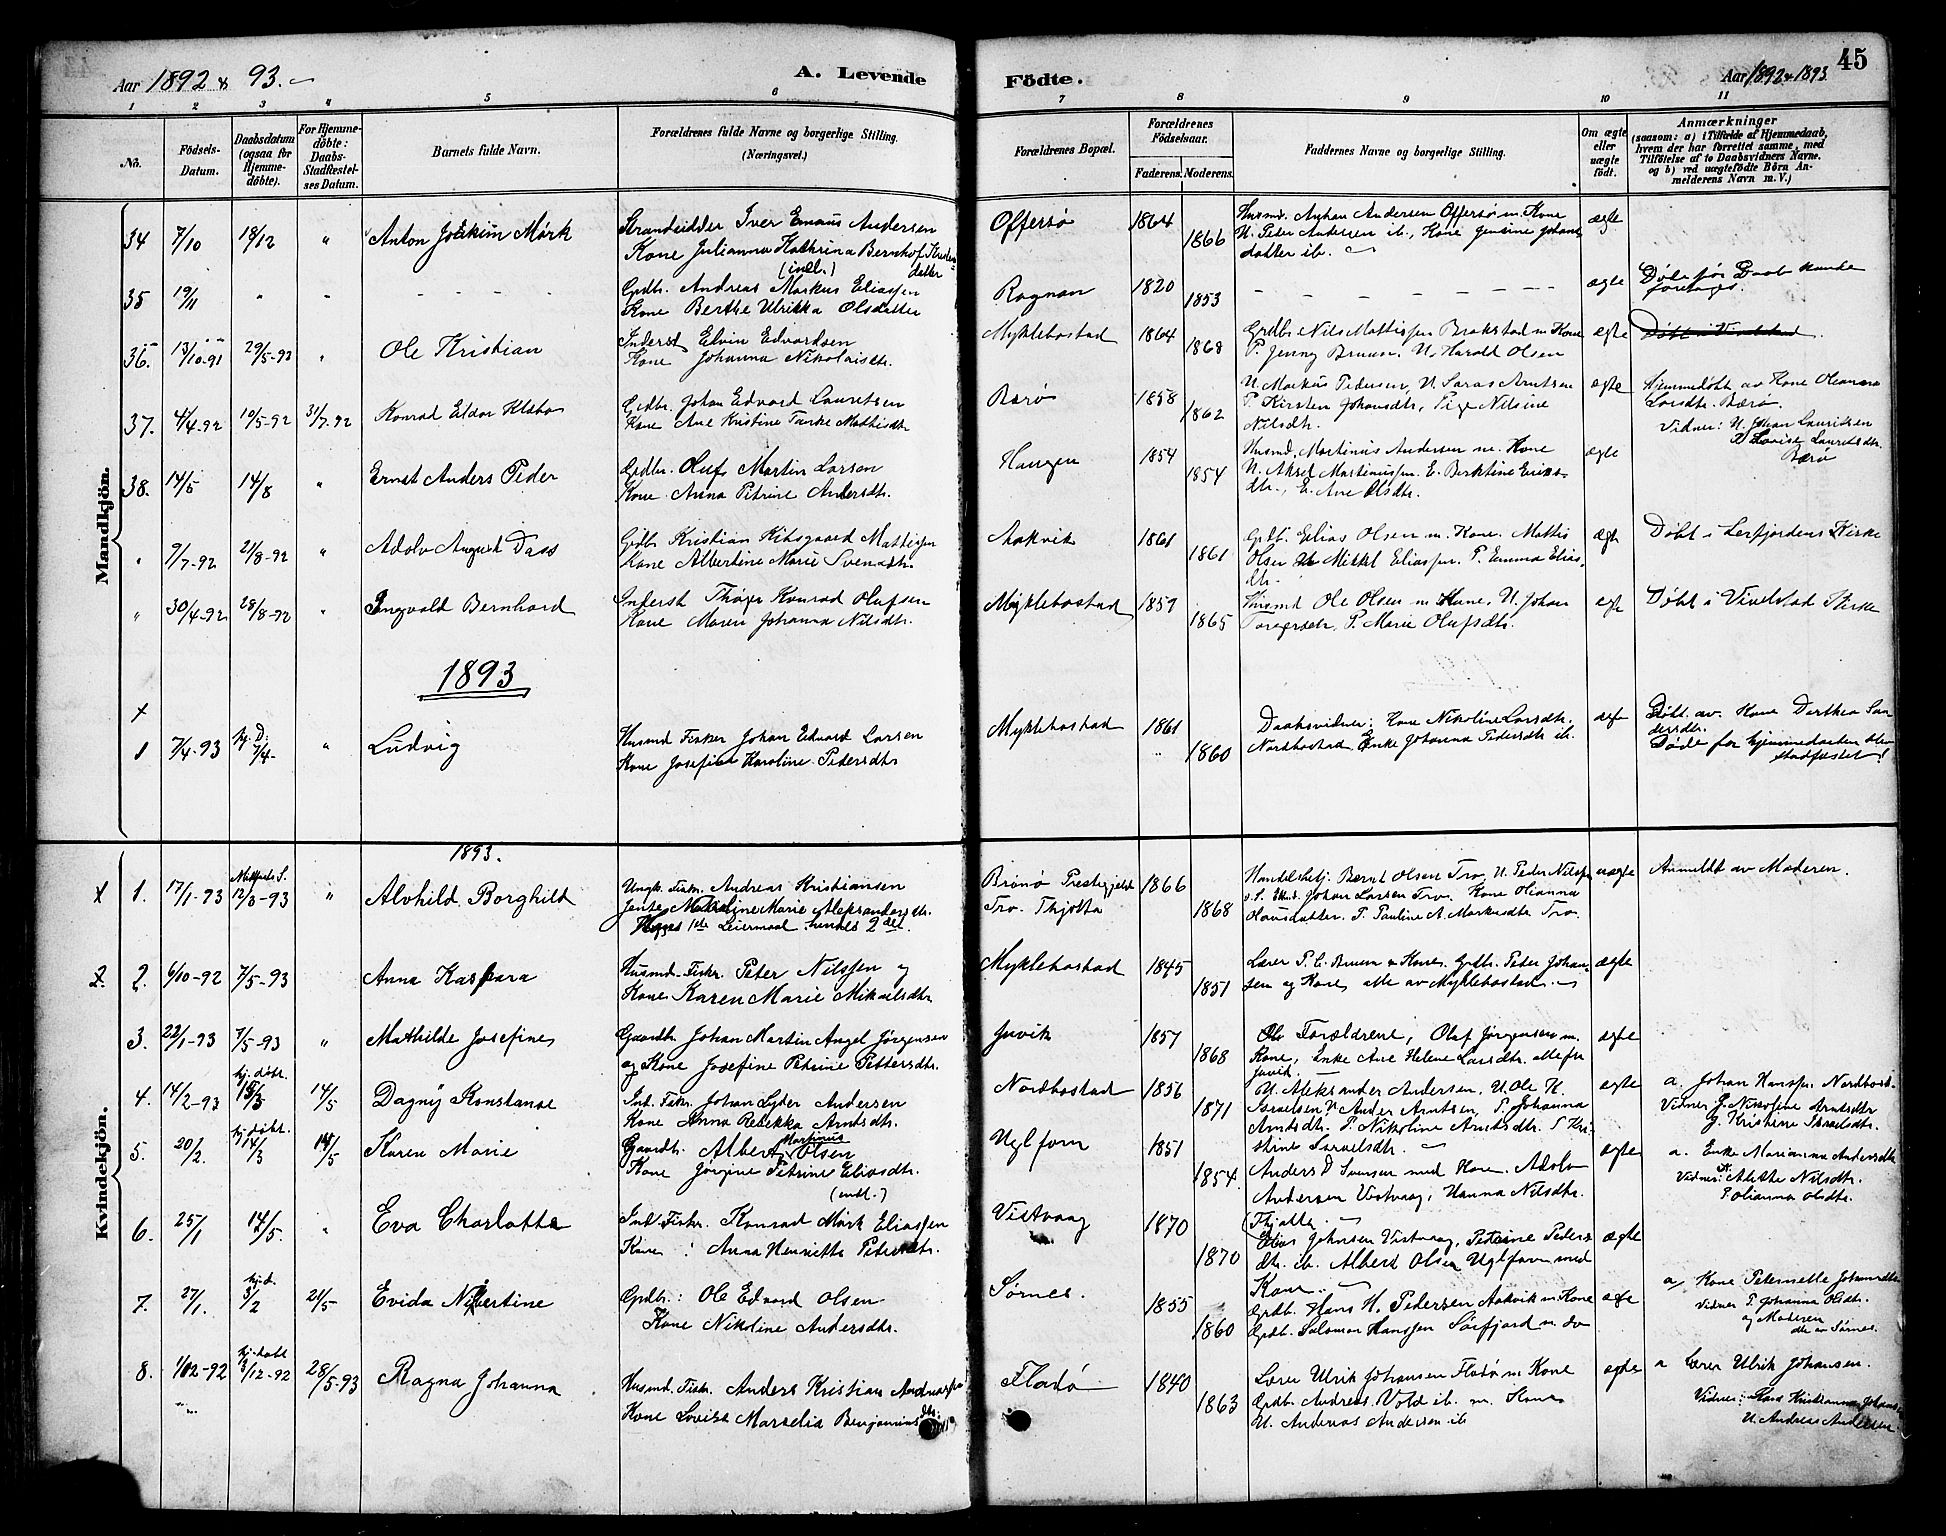 Aar 1892 & 93.
A. Levende
Födte.
Aar 1892 & 1893.
45
1 2 3 4 5 6 7 8 9 10 11
No.
Födsels-Datum.
Daabsdatum (ogsaa for Hjemme-döbte).
For Hjemme-döbte: Daabs-Stadfæstel-ses Datum.
Barnets fulde Navn.
Forældrenes fulde Navne og borgerlige Stilling. (Næringsvei.)
Forældrenes Bopæl.
Forældrenes Födselsaar.
Faderens. Moderens.
Faddernes Navne og borgerlige Stilling.
Om ægte eller uægte födt.
Anmærkninger
(saasom: a) i Tilfælde af Hjemmedaab, hvem der har forrettet samme, med Tilföielse af to Daabsvidners Navne. og b) ved uægtefödte Börn An-melderens Navn m. V.)
Mandkjön.
34 7/10 18/12 " Anton Joakim Mørk
Strandsidder Iver Emaus Andersen
Kone Julianna Kathrina Bernhof
(indl.) datter
Offersø 1864 1866
Husmd. Anton Andersen Offersø m. Kone
U. Peter Andersen ib., Kone Jensine Johans
datter ib.
ægte
35 19/11 " " - - - - -
Grdbr. Andreas Markus Eliassen
Kone Berthe Ulrikka Olsdatter
Rognan 1820 1853 - - - - - - ægte
Døde før Daab kunde
foretages.
36. 13/10-91 29/5-92 " Ole Kristian
Inderst Elvin Edvardsen
Kone Johanna Nikolaisdtr.
Myklebostad 1864 1868
Grdbr. Nils Mattissen Brakstad m Kone
P. Jenny Bruun. U. Harald Olsen
ægte
37. 4/4-92 10/5-92 31/7-92 Konrad Eldar Klæbo
Grdbr. Johan Edvard Lauritsen
Kone Ane Kristine Tanke Mathisdtr
Bærø 1858 1862
U. Markus Pedersen, U. Saras Arntsen
P. Kirsten Johansdtr, Pige Nilsine
Nilsdtr.
ægte
Hjemmedøbt av Kone Oleanna
Larsdtr. Bærø.
Vidner: U. Johan Lauritsen
P. Lovise Lauritsdtr.
Bærø
38. 14/5 14/8 " Ernst Anders Peder
Grdbr. Oluf Martin Larsen
Kone Anna Petrine Andersdtr.
Haugen 1854 1854
Husmd. Martinus Andersen m. Kone
U. Aksel Martinussen. E. Berktine Eriks-
dtr., E. Ane Olsdtr.
ægte
" 9/7-92 21/8-92 " Adolv August Dass
Grdbr Kristian Kibsgaard Mattissen
Kone Albertine Marie Svensdtr.
Aakvik 1861 1861
Grdb. Elias Olsen m. Kone. Mattis
Olsen U. Mikkel Eliassen. P. Emma Elias
dtr.
ægte
Døbt i Leirfjordens Kirke
" 30/4-92 28/8-92 " Ingvald Bernhard
Inderst Thøger Konrad Olufsen
Kone Maren Johanna Nilsdtr.
Myklebostad 1859 1865
Husmd Ole Olsen m Kone, U. Johan
P. Marie Olufsdtr.
ægte
Døbt i Vivelstad Kirke
1893
1 7/4-93 hj.D. 7/4- " Ludvig
Husmd Fisker Johan Edvard Larsen
Kone Josefine Karoline Pedersdtr
Myklebostad 1861 1860
Daabsvidner: Kone Nikoline Larsdtr.
Nordbostad Enke Johanna Pedersdtr ib.
ægte
Døbt av Kone Dorthea San
dersdtr.
Døde før hjemmedaaben blev
stadfæstet!
Kvindekjön.
1893.
1. 17/1-93 12/3-93 " Alvhild Borghild
Ungk. Fiskr. Andreas Kristiansen
Jente Nikoline Marie Aleksandersdtr.
Hans 1ste Leiermaal hendes 2det.
Brønø Prestegjeld
Tro. Thjøtta
1866 1868
Handelsbetj. Bernt Olsen Tro, U. Peder Nilssen
Johan Larsen Tro. Kone Olianna
Hansdatter. P. Pauline A. Markusdtr Tro.
uægte
Anmeldt av Moderen.
2. 2. 6/10-92 7/5-93 Anna Kaspara
Husmd. Fiskr. Peter Nilssen og
Kone Karen Marie Mikaelsdtr.
Myklebostad 1845 1851
Lærer P. C. Bruun & Kone. Grdbr. Peder Johan-
sen og Kone, alle av Myklebostad.
ægte
3. 22/1-93 7/5-93 " Mathilde Josefine
Gaardb. Johan Martin Angel Jørgensen
og Kone Josefine Petrine Pettersdtr.
Juvik 1857 1868
Forældrene, Olaf Jørgensen m.
Kone, Enke Ane Helene Larsdtr. alle fra
Juvik.
ægte
4. 14/2-93 hj. døbt. 15/3 14/5 Dagny Konstanse
Ind. Fiskr. Johan Lyder Andersen
Kone Anna Rebekka Arntsdtr.
Nordbostad 1856 1871
U. Aleksander Andersen, U. Ole K.
Israelsen U. Ander Arntsen, P. Johanna
Arntsdtr. P. Nikoline Arntsdtr. P Kri-
stine Israelsdtr.
ægte
a. Johan Hanssen Nordbost.
Vidner P. Nikoline Arntsdtr
P. Kristine Israelsdtr.
5. 20/2. hj. døbt. 14/3 14/5 Karen Marie
Gaardb. Albert Martinus Olsen
Kone Jørgine Petrine Eliasdtr.
(indl.)
Uglfavn 1851 1854
Anders D Svensen med Kone. Adolv
Andersen Vistvaag, Hanna Nilsdtr.
Thjøtta.
ægte
a. Enke Marianna Andersdtr
Vidner: Alette Nilsdtr.
P. Olianna Olsdtr.
6. 25/1 14/5. " Eva Charlotte
Ind. Fiskr. Konrad Mørk Eliassen
Kone : Anna Henriette Petersdtr.
Vistvaag 1870 1870
Elias Johnsen Vistvaag, Petrine Peders
dtr. ib. Albert Olsen Uglfavn med
Kone.
ægte
7. 27/1. hj.d. 3/2 21/5 Evida Nibertine
Grdbr: Ole Edvard Olsen
Kone Nikoline Andersdtr.
Sørnes. 1855 1860
Grdb. Hans H. Pedersen Aakvik m. Kone
Grdb. Salomon Hanssen Sørfjord m. do
ægte
a, Kone Peternelle Johansdtr.
Vidner P. Johanna Olsdtr.
og Moderen
alle av Sørnes.
8. 1/12-92 hj.døbt 3/12-92 28/5-93 Ragna Johanna
Husmd. Fiskr. Anders Kristian Andreassen
Kone Lovise Marselia Benjaminsdtr.
Fladø 1840 1863
Lærer Ulrik Johansen Fladø m Kone
Grdb. Andreas Vold ib. m. Kone
U. Andreas Andersen ib.
ægte
a Lærer Ulrik Johansen.
Vidner: Kone Kristianna Johans
U. Andreas Andersen.